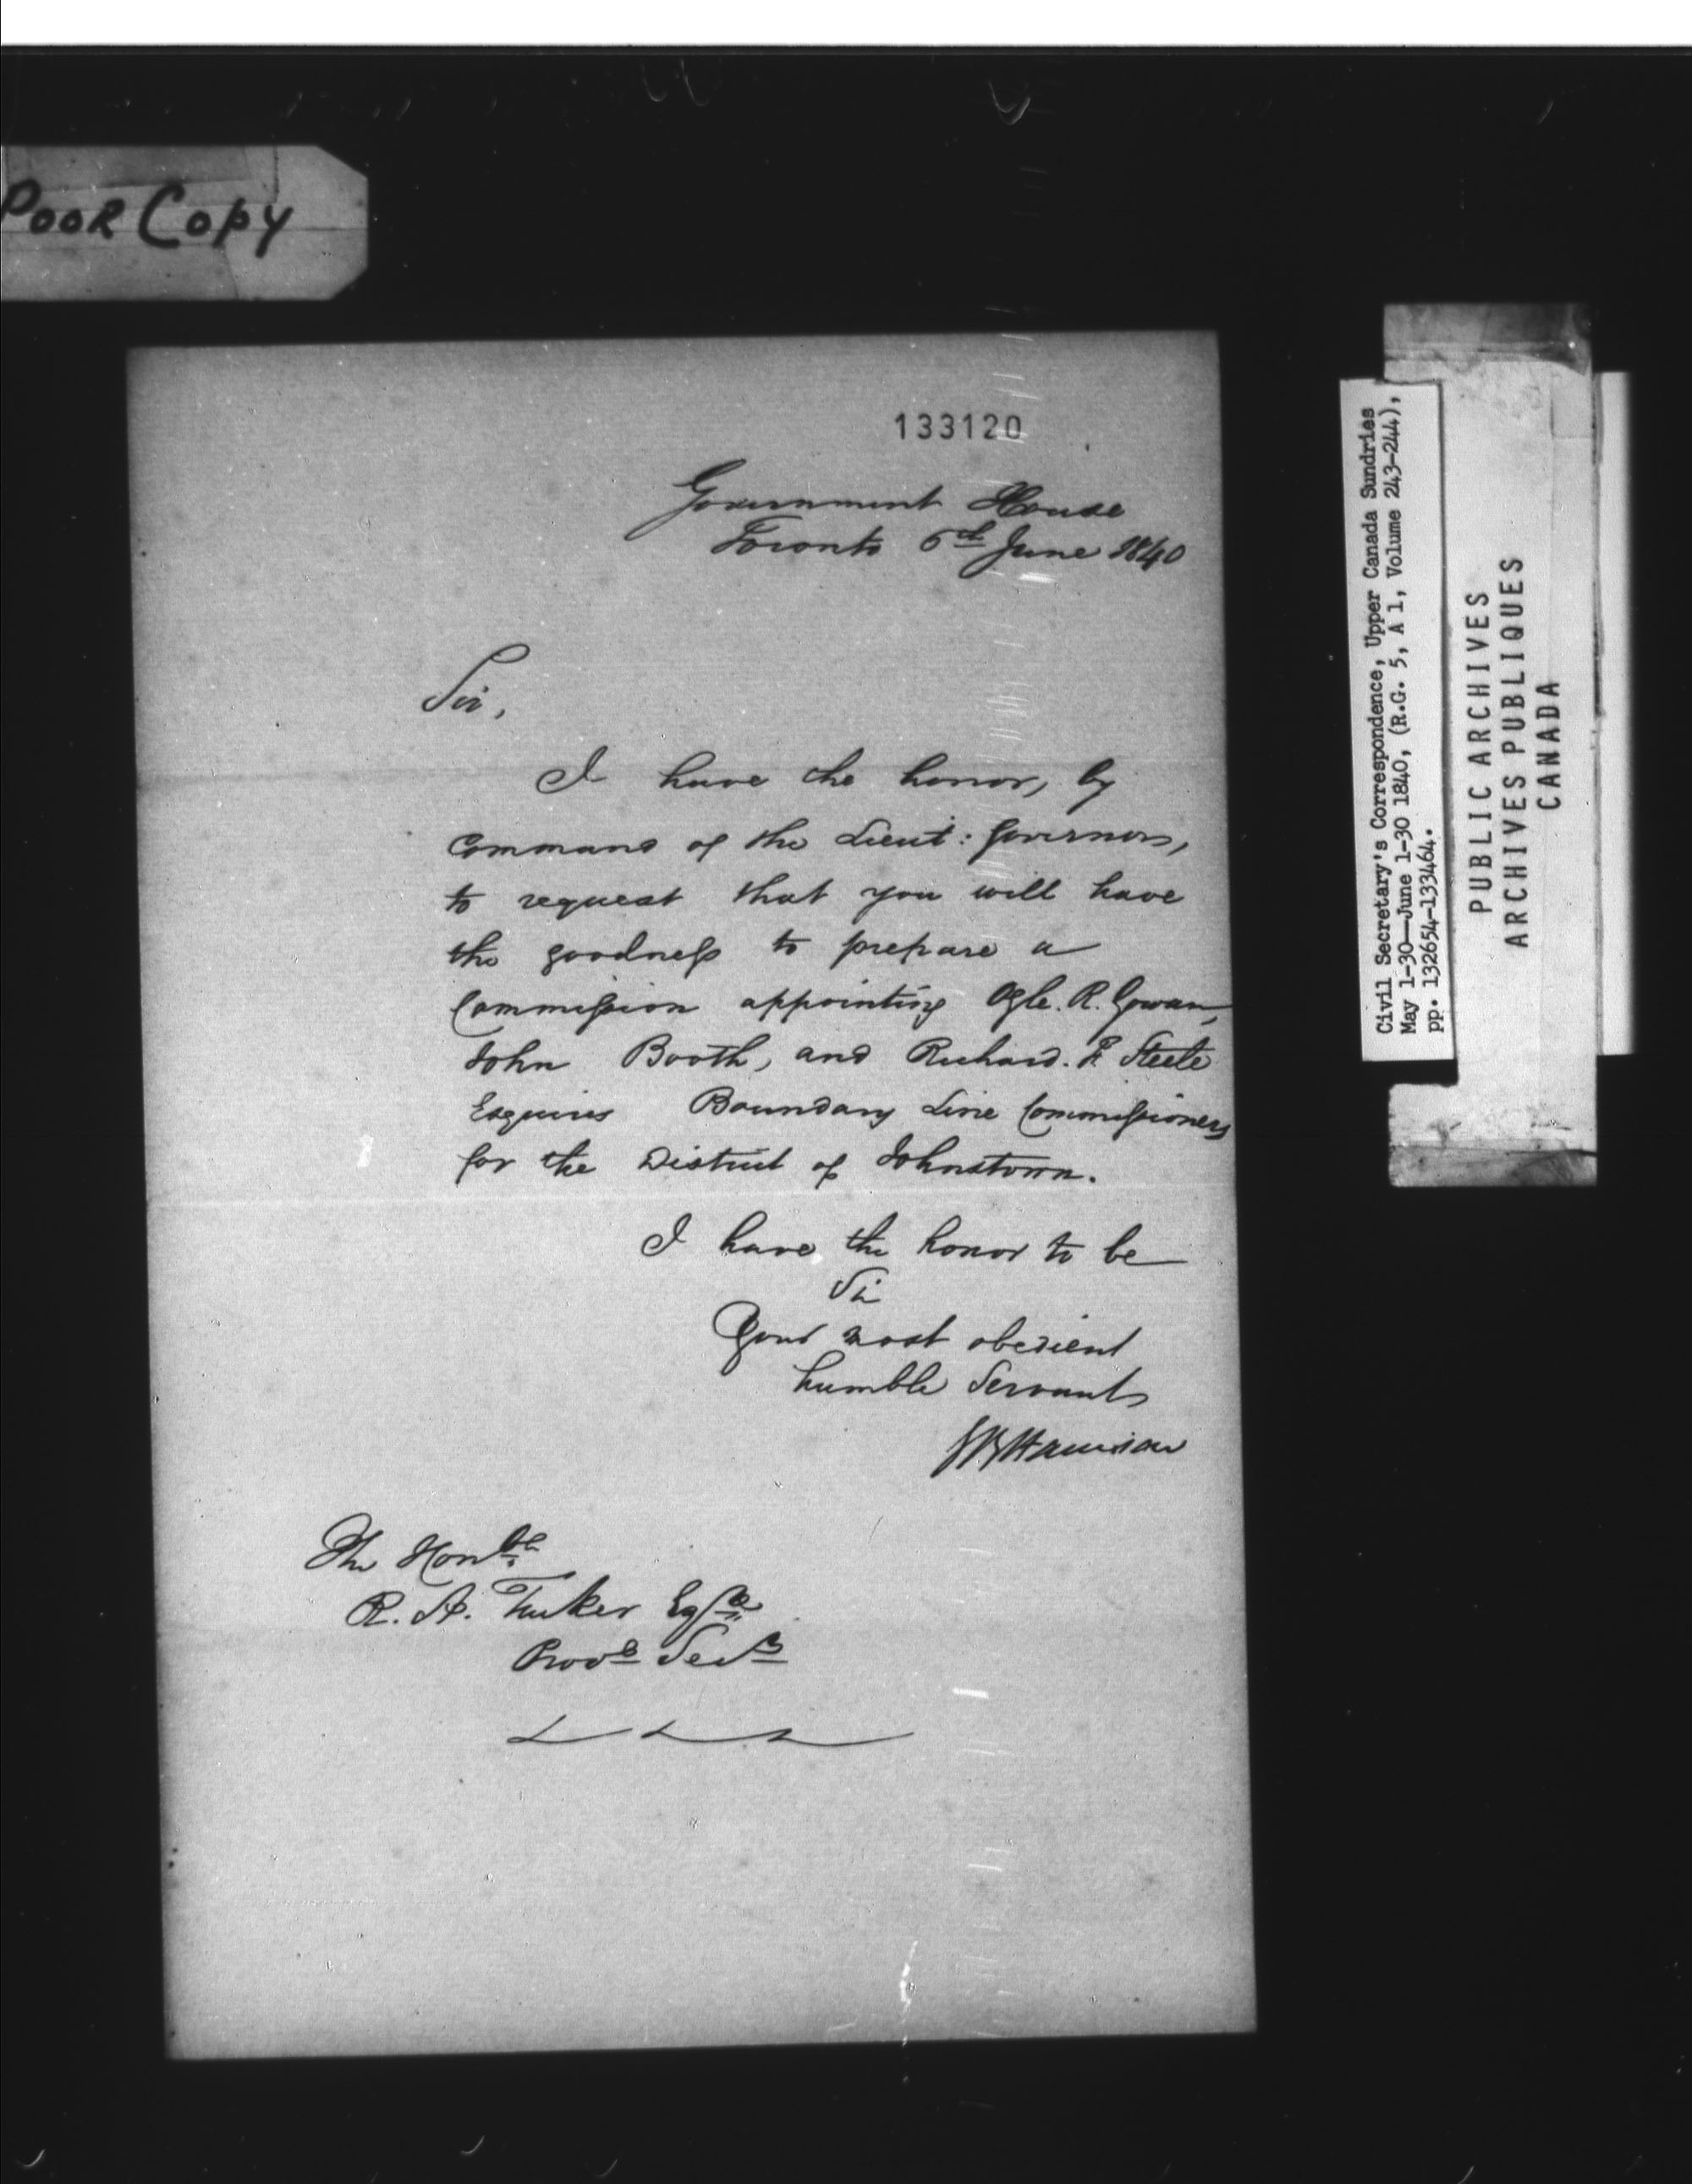 Poor Copy
133120
Government House
Toronto 6th June 1840
Sir,
I have the honor, by
command of the Lieut: Governor,
to request that you will have
the goodness to prepare a
Commission appointing Ogle. R. Gowan,
John Booth, and Richard. F. Steele
Esquires Boundary Line Commissioners
for the District of Johnstown.
I have the honor to be
Sir
Your most obedient
humble Servant
S B Harrison
The Honble
R. A. Tucker Esqre
Provl Secy
Civil Secretary's Correspondence, Upper Canada Sundries
May 1-30—June 1-30 1840, (R.G. 5, A 1, Volume 243-244),
pp. 132654-133464.
PUBLIC ARCHIVES
ARCHIVES PUBLIQUES
CANADA